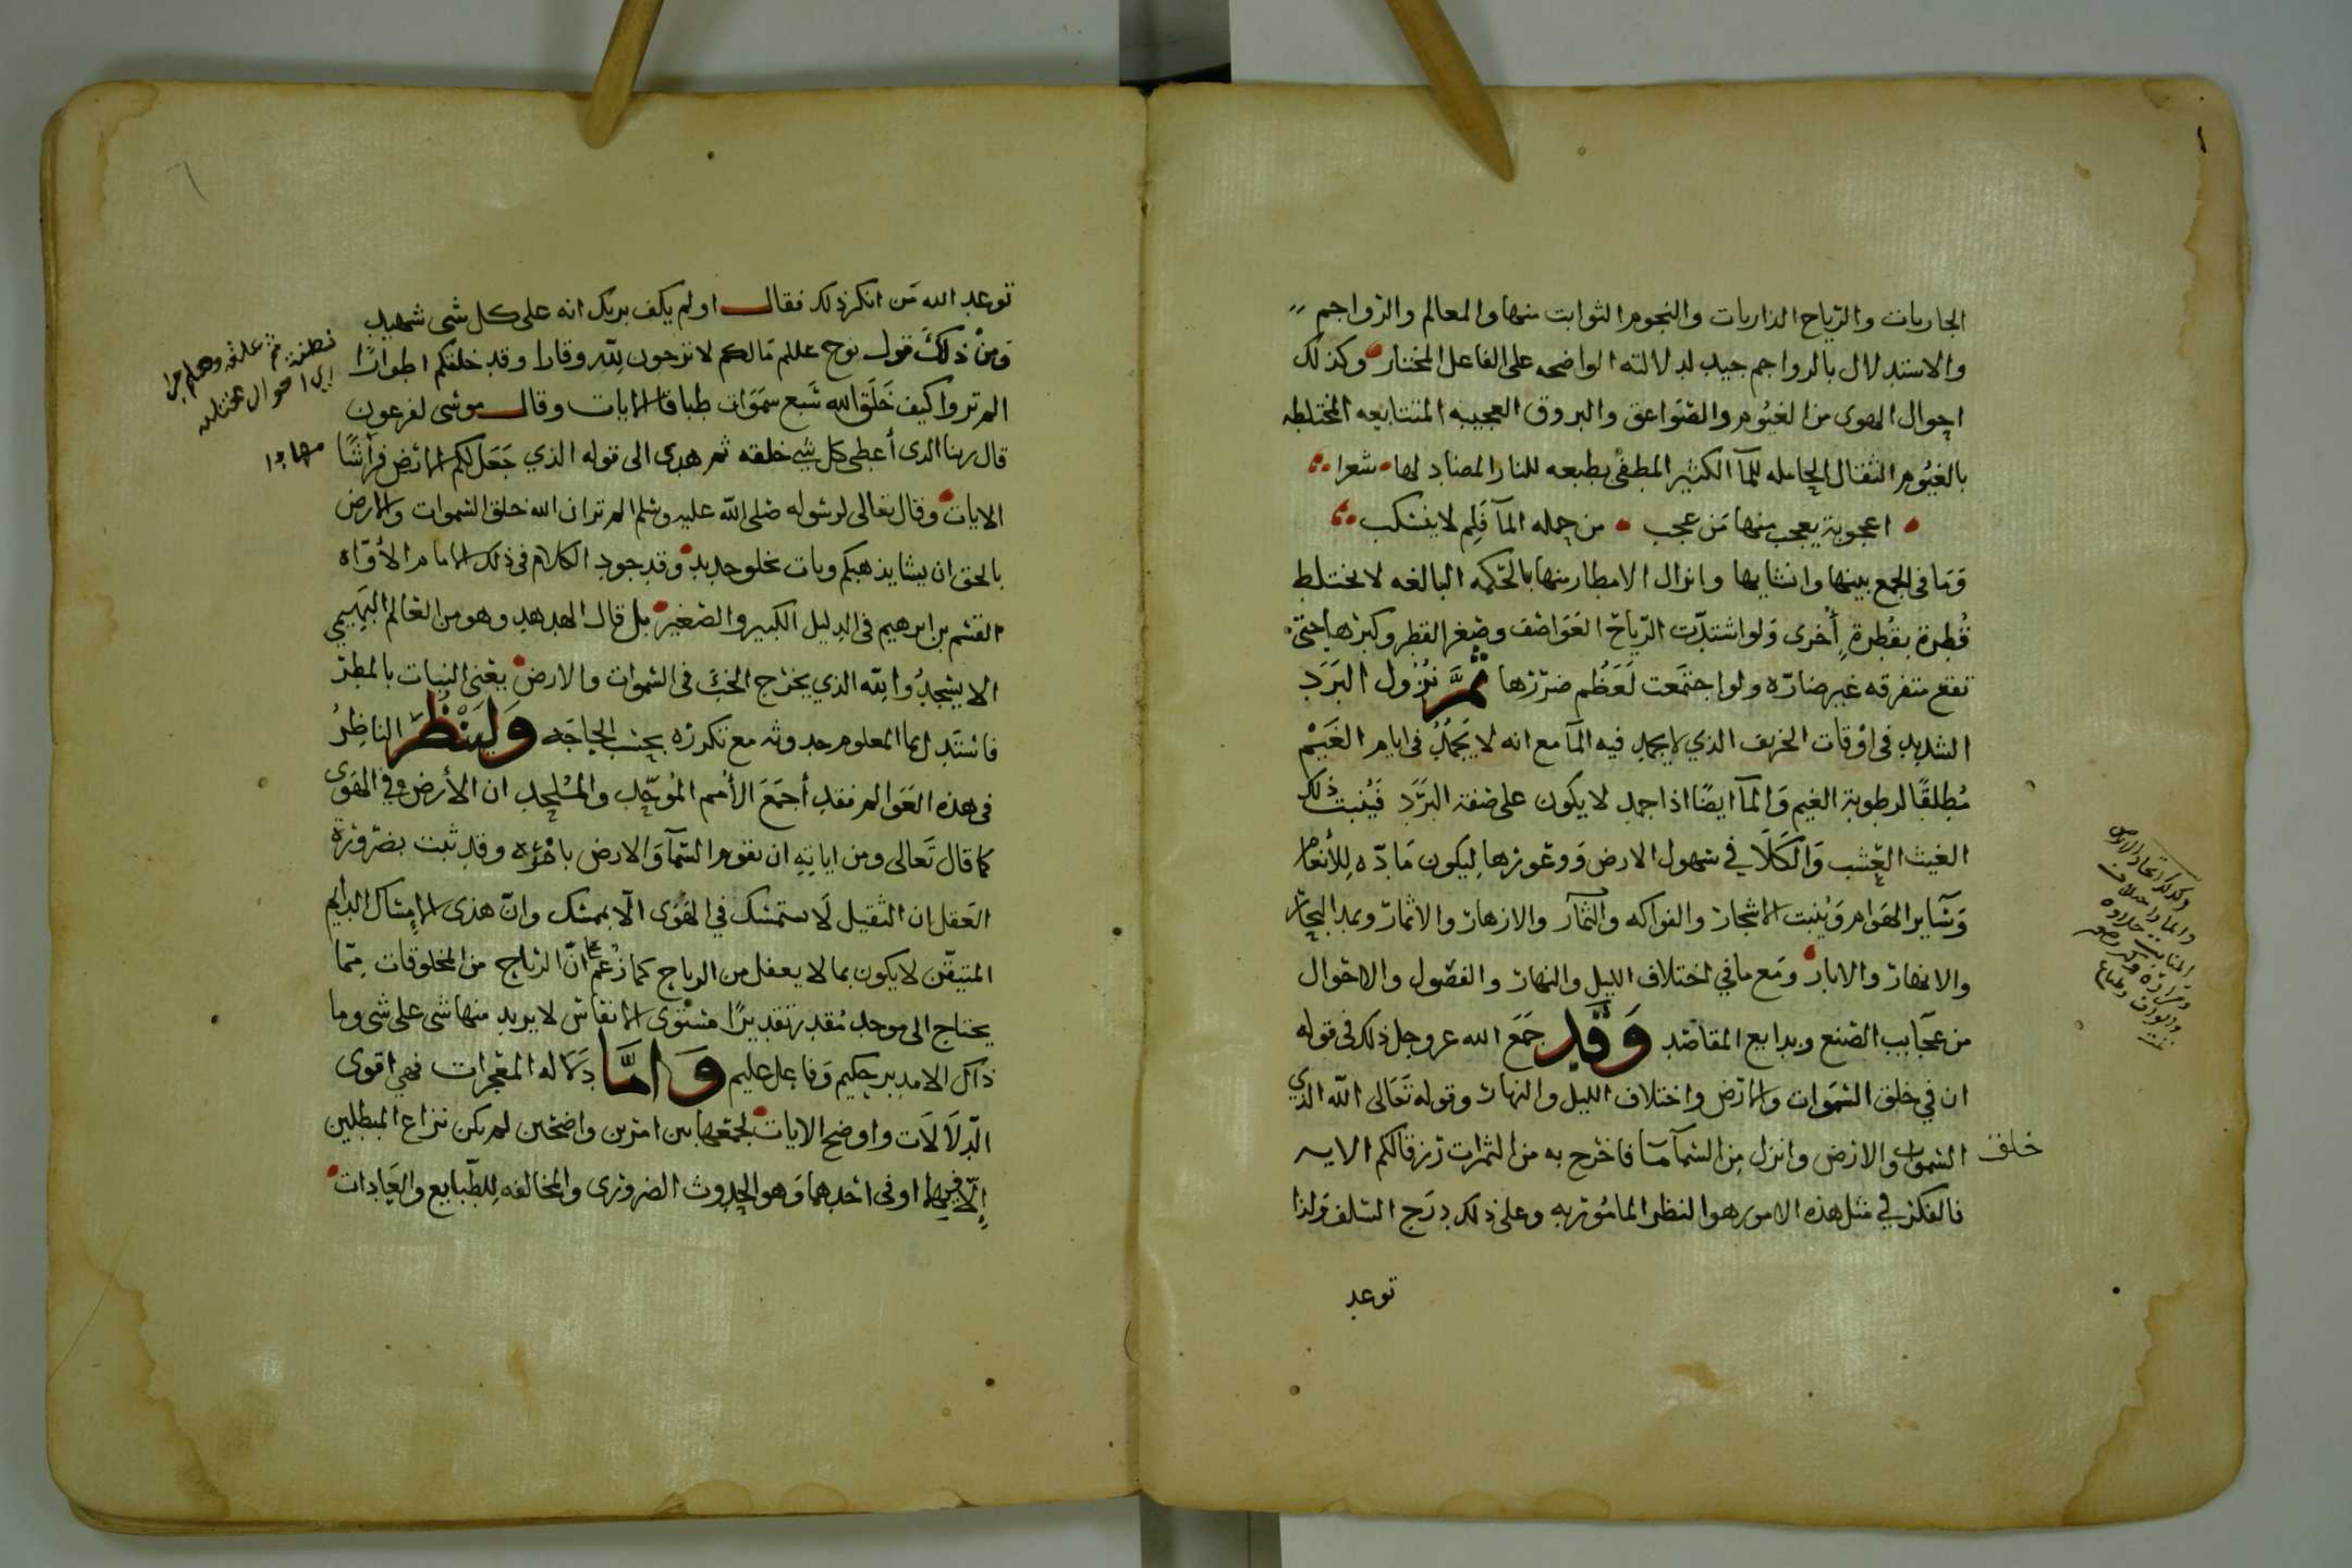 الجاريات والرياح الذاريات والنجوم الثوابت منها والمعالم والرواجم
والاستدلال بالرواجم جيد لدلالته الواضحه على الفاعل المختار وكذلك
احوال الهوى من الغيوم والصواعق والبروق العجيبه المتتابعه المختلطه
بالغيوم الثقال الحامله للمآ الكثير المطفى بطبعه للنار المضاد لها شعرا
اعجوبة يعجب منها من عجب من حمله المآ فلم لا ينسكب
وَمَا فى الجمع بينها وانشايها وانزال الامطار منها بالحكمه البالغه لا تختلط
قُطرة بقُطرةٍ أخرى ولو اشتدّت الرّياح العَوَاصف وصغر القطر وكبرها حتى
تقع متفرقه غير ضارّه ولو اجتمَعت لَعَظُم ضررها ثمَّ نُزُول البَرَد
الشديد فى اوقات الخريف الذي لا يجمد فيه المآ مع انه لا يَجمُدُ فى ايام الغَيْم
مُطلقًا لرطوبة الغيم وَالمآ ايضًا اذا جمد لا يكون على صفة البَرَد فيُنبت ذلك
الغيث العُشب وَالكَلَا في سهول الارض وَوعُورها ليكون مَادّه لِلأنعام
وَسَآير الهَوَام وَيُنبت الاشجار والفواكه والثمآر والازهار والاثمار وبمد البحار
والانهار والابار ومَع ما في اختلاف الليل والنهار والفصُول والاحوال
من عجَايب الصنع وبدايع المقاصد وَقَد جَمَع الله عز وجل ذلك فى قوله
ان في خلق السّمَوات والارض واختلاف الليل والنهار وقوله تَعَالى الله الذي
خلق السّموات والارض وانزل من السّمآ مَآ فاخرج به من الثمرات رزقا لكم الايه
فالفكر في مثل هذه الامور هو النظر المامُور به وعلى ذلك دَرَج السّلف وَلذا
توعد
وكذلك اتحاد الارض
والماء واختلاف
توعد الله مَن انكر ذلك فقال اولم يكف بربك انه على كل شى شهيد
وَمِنْ ذلكَ قول نوح عللم مَالكم لا ترجون لله وقارا وقد خلقكم اطوارًا
الم تروا كيف خَلَقَ الله سَبع سَمَوَات طباقا الايات وقال موسى لفرعون
قال ربنا الذى أعطى كل شي خلقه ثم هدى الى قوله الذي جَعَل لكم الارض فراشًا
الايات وقال تعالى لرسوله صلى الله عليه وسلم الم تر ان الله خلق السّموات والارض
بالحق ان يشا يذهبكم ويات بخلق جديد وقد جود الكلام فى ذلك الامام الأوّاه
القسم بن ابرهيم فى الدليل الكبير والصغير بل قال الهدهد وهو من العَالم البَهيمي
الا يسجدُوا لله الذي يخرج الخبَ فى السّموات والارض يعنى النبات بالمطر
فاستَدل بما المعلوم حدوثه مع تكرره بحسَب الحاجَه وَليَنْظُر الناظِرُ
فى هذه العَوالم فقد أجمَعَ الأُمم المُوحّد والمُلحد ان الأرض في الهَوى
كما قال تَعالى ومن اياتهِ ان تقوم السّمآ وَالارض بامْرِهِ وقد ثبت بضرورة
العَقل ان الثقيل لَا يستمسك في الهَوى الّا بممسك وانّ هذى الإمسَاك الدايم
المتيقّن لا يكون بما لا يعقل من الرياح كما زُعم انّ الرياح من المخلوقات مِمّا
يحتاج الى موجد مُقدر تقديرًا مستوى الانقاس لا يريد منها شى على شى وما
ذاك الا مدبر حكيم وَفاعل عليم وَامَّا دَلاله المعْجزات فهي اقوى
الدّلَالَات واوضح الايات لجمعها بين امرين واضحين لم يكن نزاع المبطلين
إلّا فيهما او فى احدهما وَهو الحدوث الضرورى والمخالفه لِلطّبايع والعَادات
نطفة ثم علقة وهلم جرا
اي احوال مختلفه
مهادا